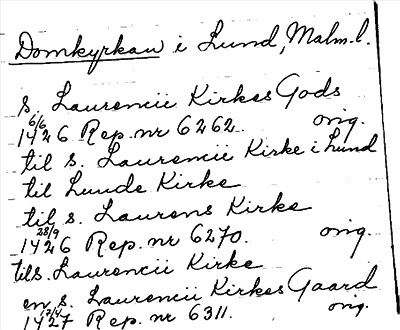 Domkyrkan i Lund, Malm.l.
s. Laurencii Kirkes Gods
1426 6/6 Rep. nr 6262. orig.
til s. Laurencii Kirke i Lund
til Lunde Kirke
til s. Laurens Kirke
1426 28/9 Rep. nr 6270. orig.
til s. Laurencii Kirke
en s. Laurencii Kirkes Gaard
1427 Rep. nr 6311. orig.